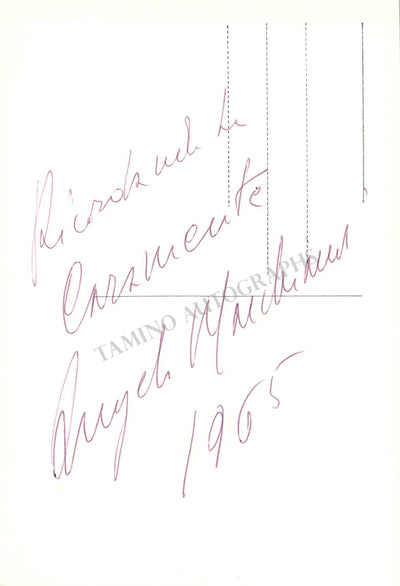 Ricordandola
Caramente
Angelo Marchiandi
1965
TAMINO AUTOGRAPHS